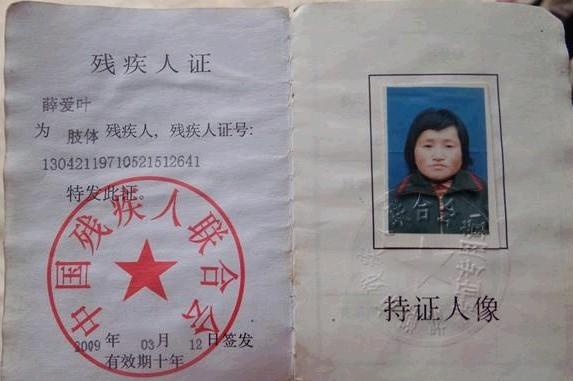 残疾人证
薛爱叶
为 肢体 残疾人，残疾人证号:
13042119710521512641
特发此证。
中国残疾人联合会
2009 年 03 月 12 日签发
有效期十年
持证人像